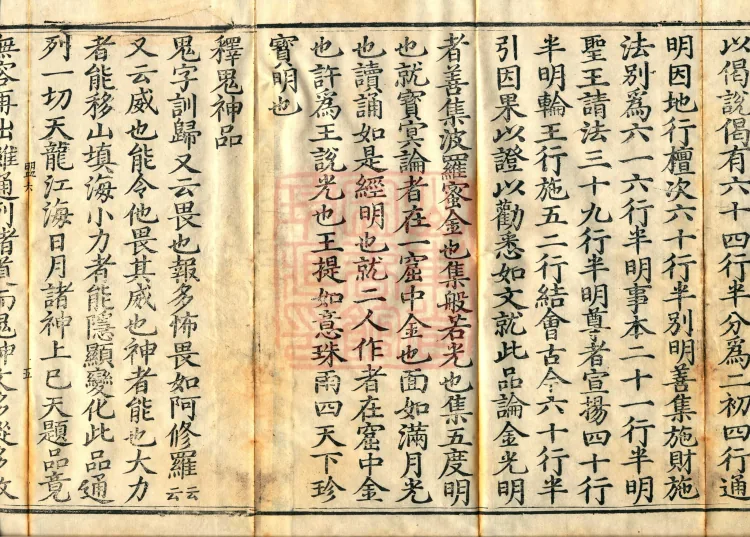 以偈說偈有六十四行半分爲二初四行通
明因地行檀次六十行半別明善集施財施
法別爲六一六行半明事本二十一行半明
聖王請法三十九行半明尊者宣揚四十行
半明輪王行施五二行結會古今六十行半
引因果以證以勸悉如文就此品論金光明
者善集波羅蜜金也集般若光也集五度明
也就寶冥論者在一窟中金也面如滿月光
也讀誦如是經明也就二人作者在窟中金
也許爲王說光也王提如意珠雨四天下珍
寶明也
釋鬼神品
鬼字訓歸又云畏也報多怖畏如阿修羅云云
又云威也能令他畏其威也神者能也大力
者能移山填海小力者能隱顯變化此品通
列一切天龍江海日月諸神上已天題品竟
盟六 五
無容再出雖通列諸而鬼神文多從多